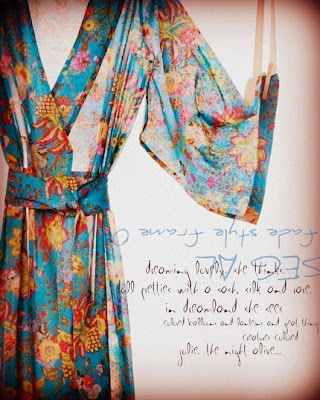 fade style frame 0
dreaming lovely, she thinks
pretties with a sash, silk and
in dreamland she sees
colored balloons and lanterns and great things
creatures colored
jolie. the night alive...